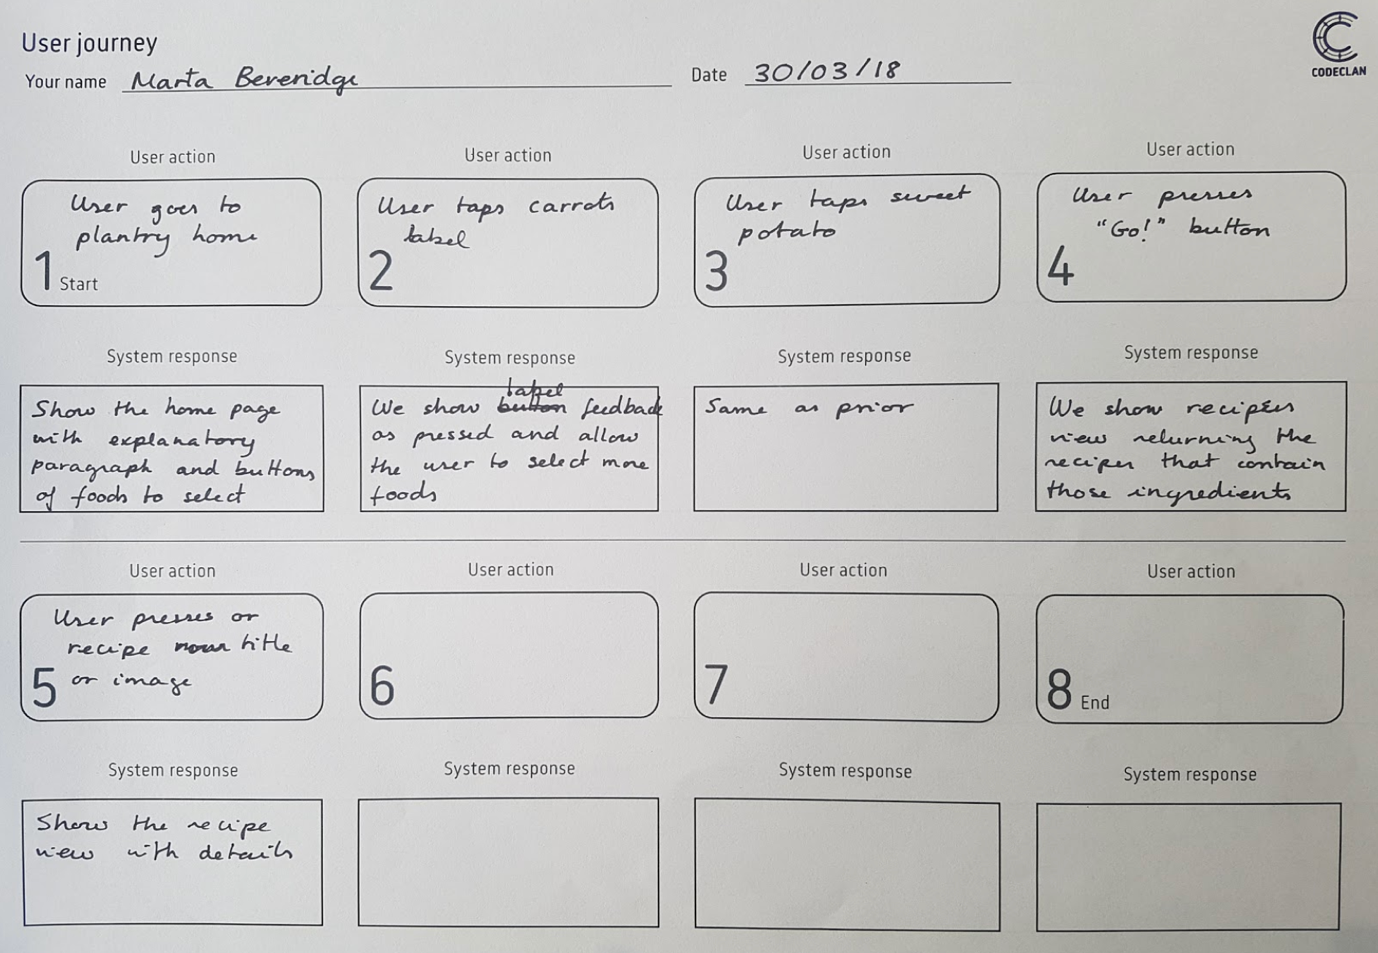 User journey
Your name Marta Beveridge
Date 30/03/18
CODECLAN
User action
User goes to
plantry home
1 Start
User action
User taps carrots
label
2
User action
User taps sweet
potato
3
User action
User presses
"Go!" button
4
System response
Show the home page
with explanatory
paragraph and buttons
of foods to select
System response
label
We show button feedback
as pressed and allow
the user to select more
foods
System response
Same as prior
System response
We show recipes
view returning the
recipes that contain
those ingredients
User action
User presses or
recipe title
or image
5
User action
6
User action
7
User action
8 End
System response
Show the recipe
view with details
System response
System response
System response